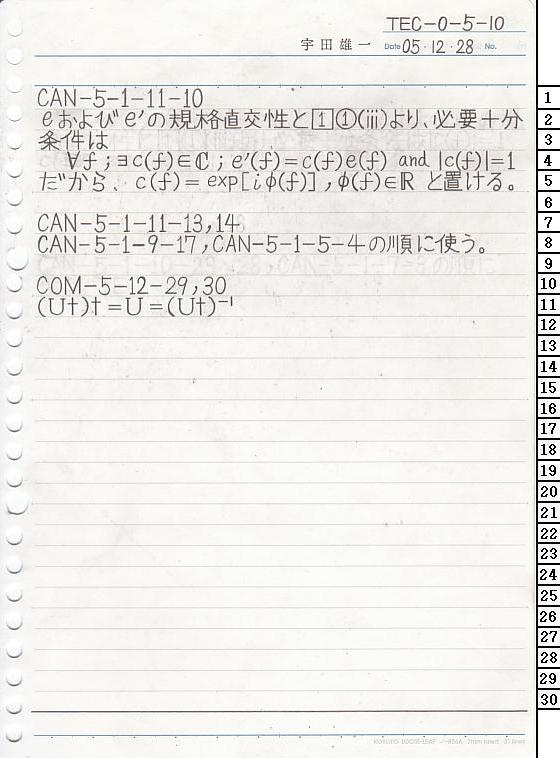 TEC-0-5-10
宇田雄一 Date 05・12・28 No.
CAN-5-1-11-10
eおよびe'の規格直交性と1①(iii)より、必要十分
条件は
∀f;∃c(f)∈ℂ;e'(f)=c(f)e(f) and |c(f)|=1
だから、c(f)=exp[iφ(f)],φ(f)∈ℝ と置ける。
CAN-5-1-11-13,14
CAN-5-1-9-17,CAN-5-1-5-4の順に使う。
COM-5-12-29,30
(U†)†=U=(U†)⁻¹
1
2
3
4
5
6
7
8
9
10
11
12
13
14
15
16
17
18
19
20
21
22
23
24
25
26
27
28
29
30
KOKUYO LOOSE-LEAF ノ-836A 7mm ruled 31 lines